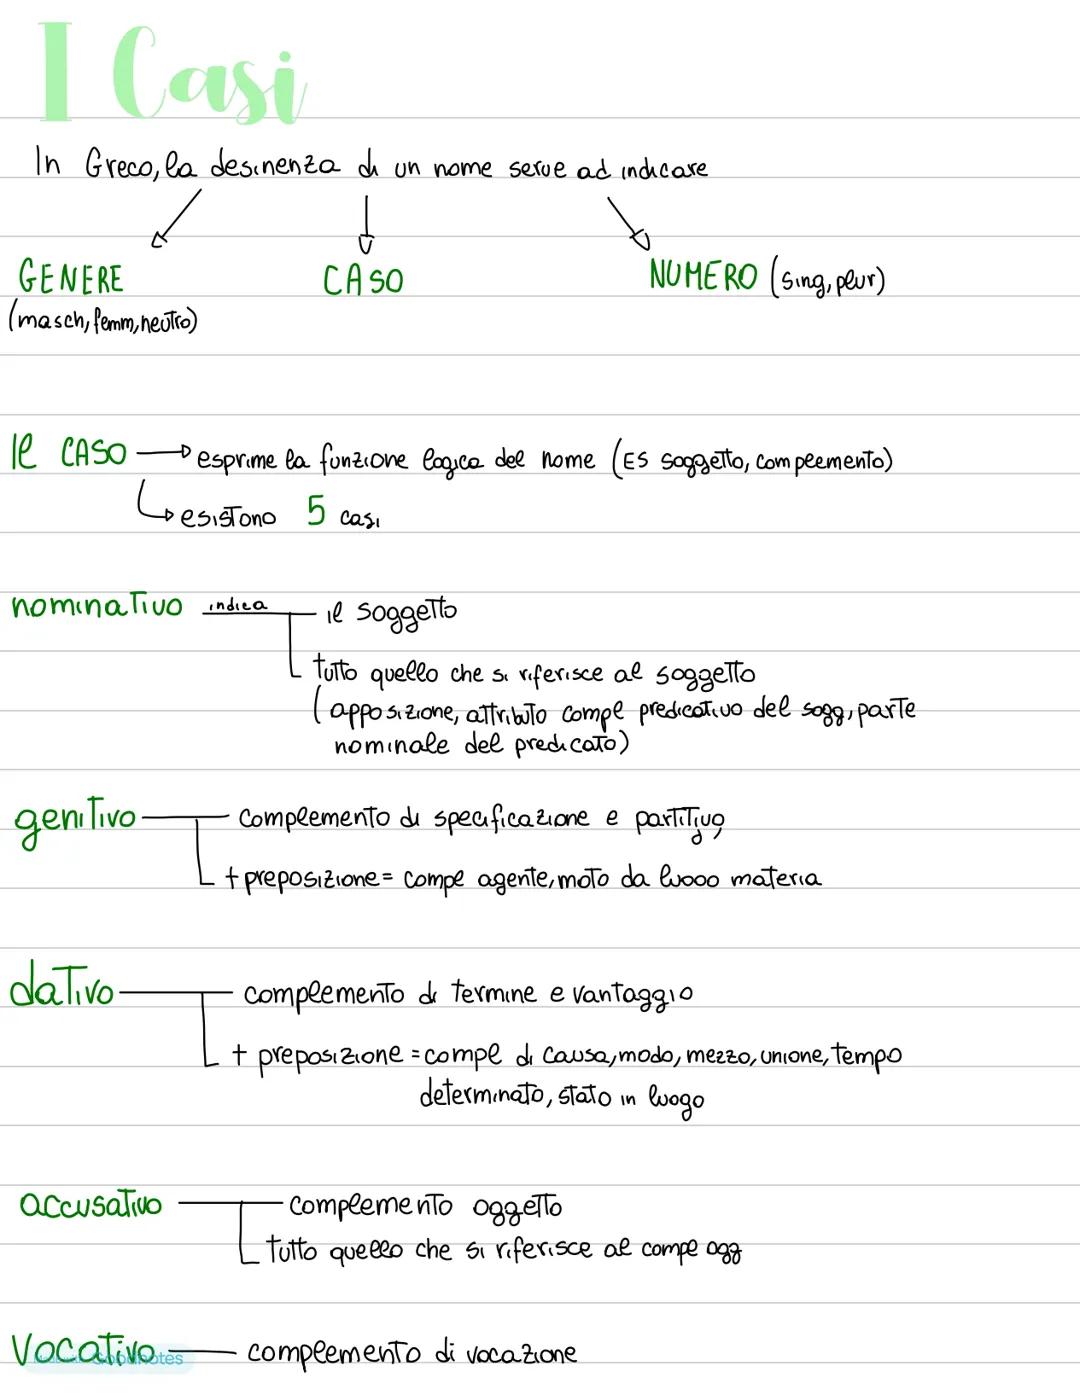 I Casi
In Greco, la desinenza di un nome serve ad indicare
GENERE CASO NUMERO (sing, plur)
(masch, femm, neutro)
Il CASO esprime la funzione logica del nome (ES soggetto, complemento)
esistono 5 casi
nominativo indica il soggetto
tutto quello che si riferisce al soggetto
(apposizione, attributo compl predicativo del sogg, parte
nominale del predicato)
genitivo complemento di specificazione e partitivo
+ preposizione = compl agente, moto da luogo materia
dativo complemento di termine e vantaggio
+ preposizione = compl di causa, modo, mezzo, unione, tempo
determinato, stato in luogo
accusativo complemento oggetto
tutto quello che si riferisce al compl ogg
Vocativo complemento di vocazione
Goodnotes